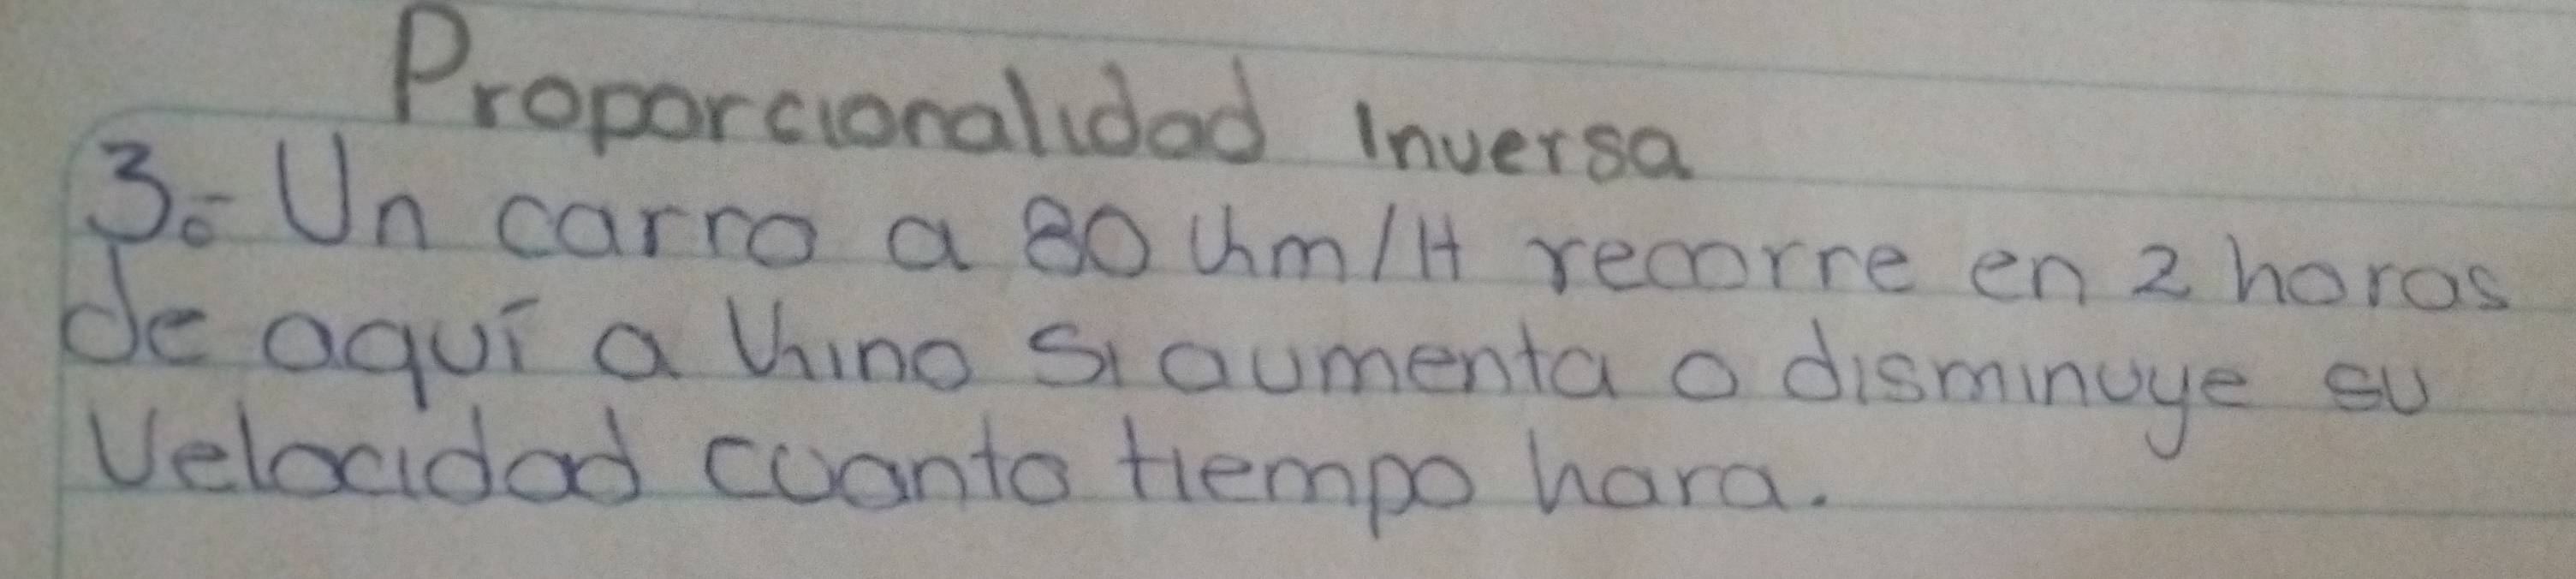 Proporcionalidad Inversa
3.- Un carro a 80 Km/H recorre en 2 horas
de aquí a Kino si aumenta o disminuye su
Velocidad cuanto tiempo hara.